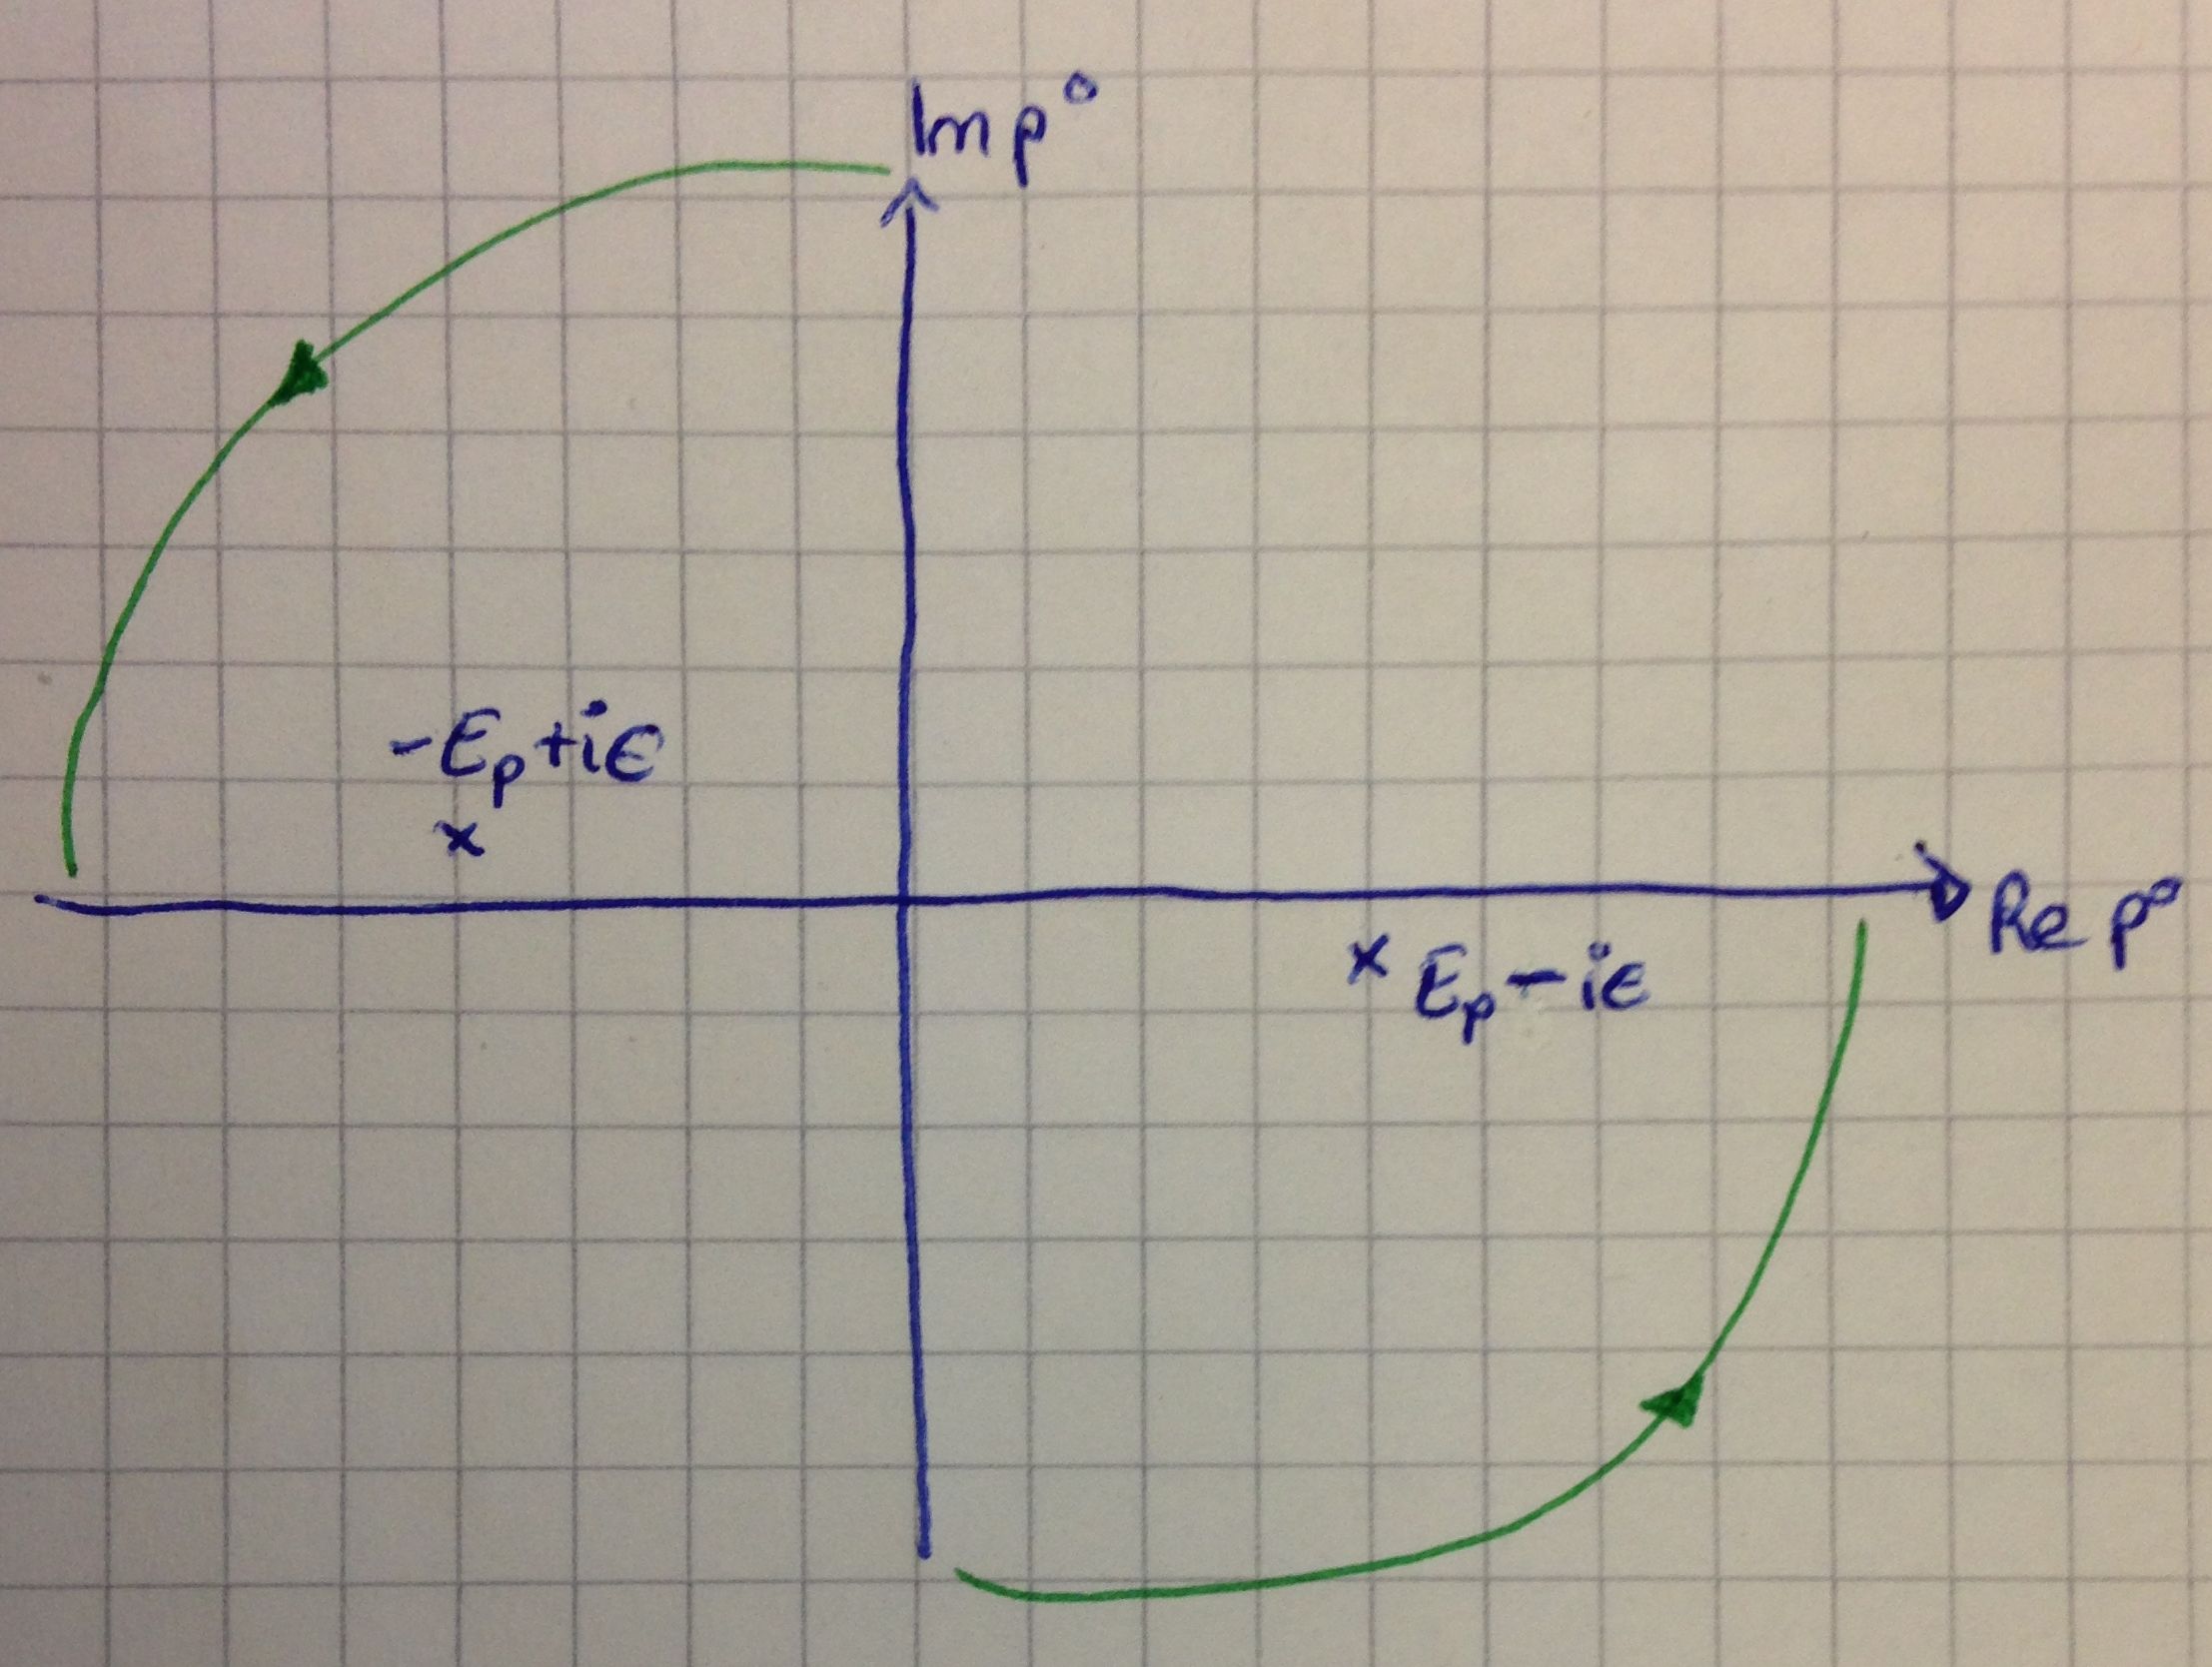 Im p°
-Eₚ+iϵ
x
Re p°
x Eₚ-iϵ